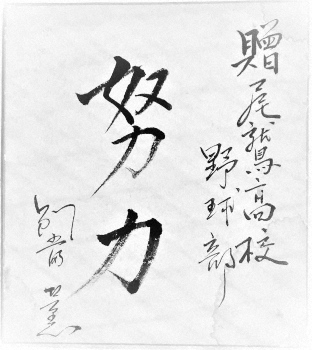 贈尾鷲高校
野球部
努力